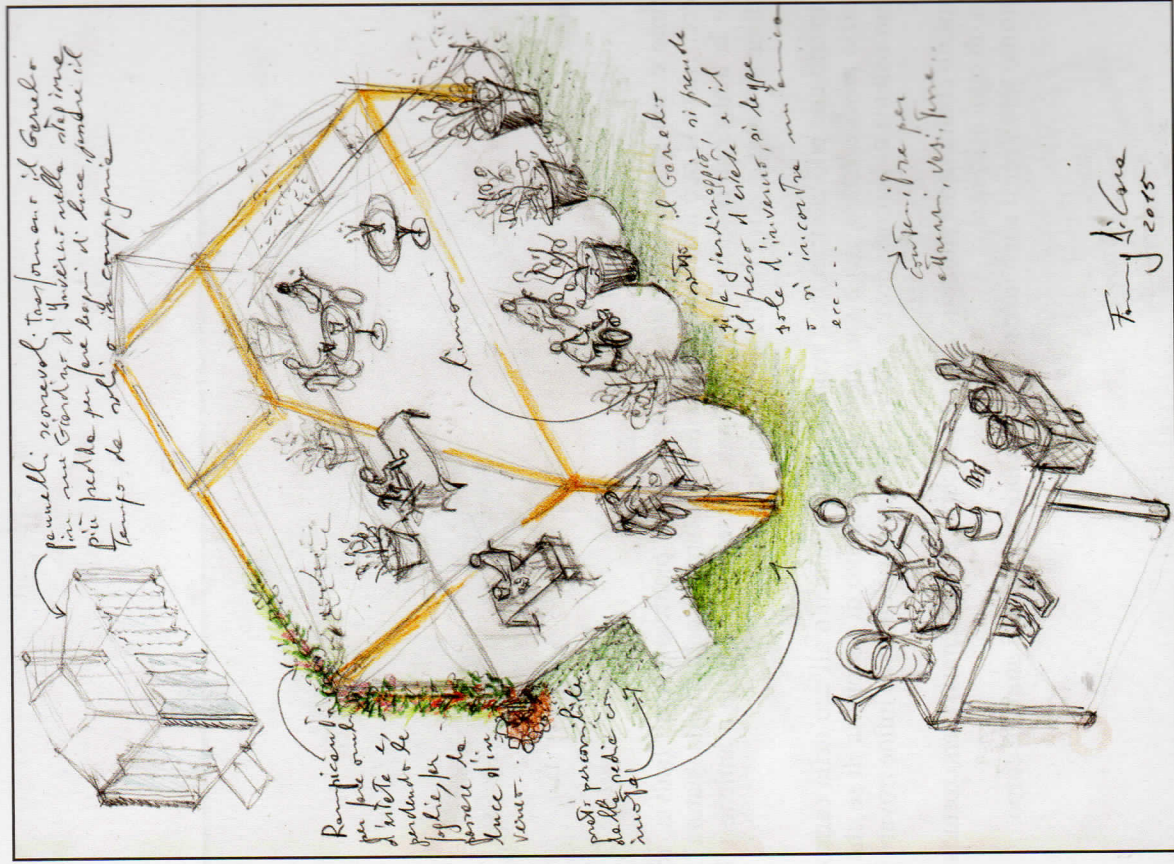 pannelli scorrevoli trasformano il Gazebo
in un Giardino d'Inverno nella stagione
più fredda per fare bagni di luce, il
tempo da soli o in compagnia
Rampicanti
per fare ombra
d'estate e
perdendo le
foglie, far
passare la
luce d'in
verno.
prati percorribili
dalla sedia con
ruote
limoni
sotto il Gazebo
si fa giardinaggio, si prende
il fresco d'estate e il
sole d'inverno, si legge
o si incontra un amico
ecc....
Contenitore per
attrezzi, vasi, terra..
2015